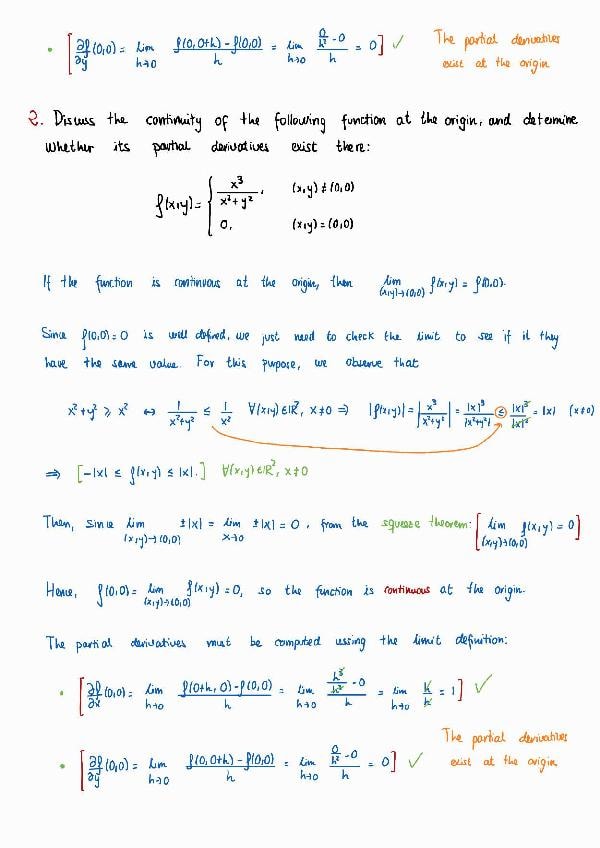 • [∂f/∂y (0,0) = lim h→0 (f(0,0+h) - f(0,0))/h = lim h→0 (0/h² - 0)/h = 0] ✓ The partial derivatives
exist at the origin
2. Discuss the continuity of the following function at the origin, and determine
whether its partial derivatives exist there:
f(x,y) = { x³/(x²+y²), (x,y) ≠ (0,0)
0, (x,y) = (0,0)
If the function is continuous at the origin, then lim (x,y)→(0,0) f(x,y) = f(0,0).
Since f(0,0) = 0 is well defined, we just need to check the limit to see if it they
have the same value. For this purpose, we observe that
x²+y² ⩾ x² ↔ 1/(x²+y²) ≤ 1/x² ∀(x,y) ∈ ℝ², x≠0 ⇒ |f(x,y)| = |x³/(x²+y²)| = |x|³/|x²+y²| ≤ |x|³/|x|² = |x| (x≠0)
⇒ [-|x| ≤ f(x,y) ≤ |x|.] ∀(x,y) ∈ ℝ², x≠0
Then, since lim (x,y)→(0,0) ±|x| = lim x→0 ±|x| = 0, from the squeeze theorem: [lim (x,y)→(0,0) f(x,y) = 0]
Hence, f(0,0) = lim (x,y)→(0,0) f(x,y) = 0, so the function is continuous at the origin.
The partial derivatives must be computed ussing the limit definition:
• [∂f/∂x (0,0) = lim h→0 (f(0+h,0) - f(0,0))/h = lim h→0 (h³/h² - 0)/h = lim h→0 h/h = 1] ✓
• [∂f/∂y (0,0) = lim h→0 (f(0,0+h) - f(0,0))/h = lim h→0 (0/h² - 0)/h = 0] ✓ The partial derivatives
exist at the origin